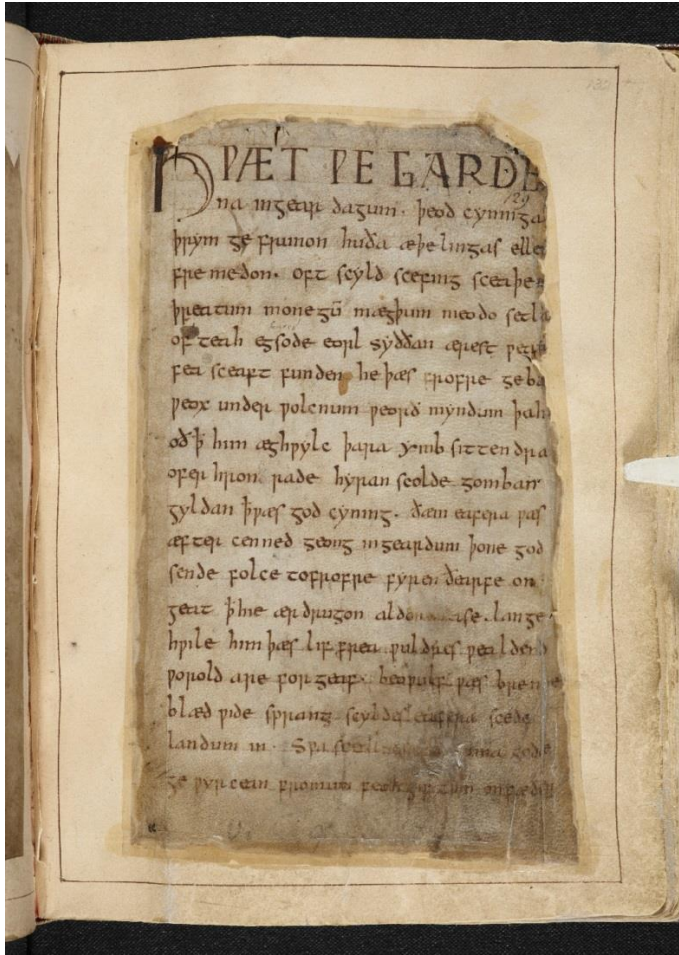 HǷÆT ǷE GARDE
na in gear dagum. þeod cyninga
þrym ge frunon huða æþelingas elle
fre medon. oft scyld scefing sceaþe
þreatum monegū mægþum meodo setla
of teah egsode eorl syððan ærest ƿear
fea sceaft funden he þæs frofre geba
ƿeox under ƿolcnum ƿeorð myndum þah
oð ꝥ him æghƿylc þara ymb sittendra
ofer hron rade hyran scolde gomban
gyldan ꝥ ƿæs god cyning. ðæm eafera ƿæs
æfter cenned geong in geardum þone god
sende folce to frofre fyren ðearfe on
geat ꝥ hie ær drugon aldor ase. lange
hƿile him þæs lif frea ƿuldres ƿealdend
ƿorold are for geaf. beoƿulf ƿæs breme
blæd ƿide sprang scyldes eafera scede
landum in. Sƿa ma gode
ge ƿyrcean fromum feoh giftum on fæder
129
130